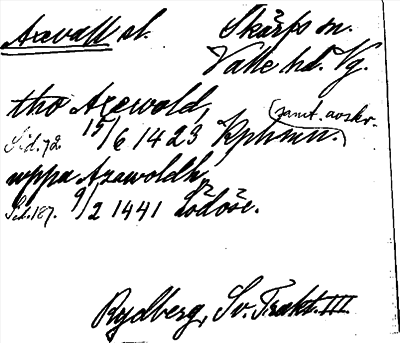 Axevall sl. Skärfs sn.
Valle hd. Vg.
tho Axewold,
Sid. 72. 15/6 1423 Kphmn. (samt. avskr.)
uppa Axawoldh,
Sid. 187. 9/2 1441 Lödöse.
Rydberg, Sv. Trakt. III.